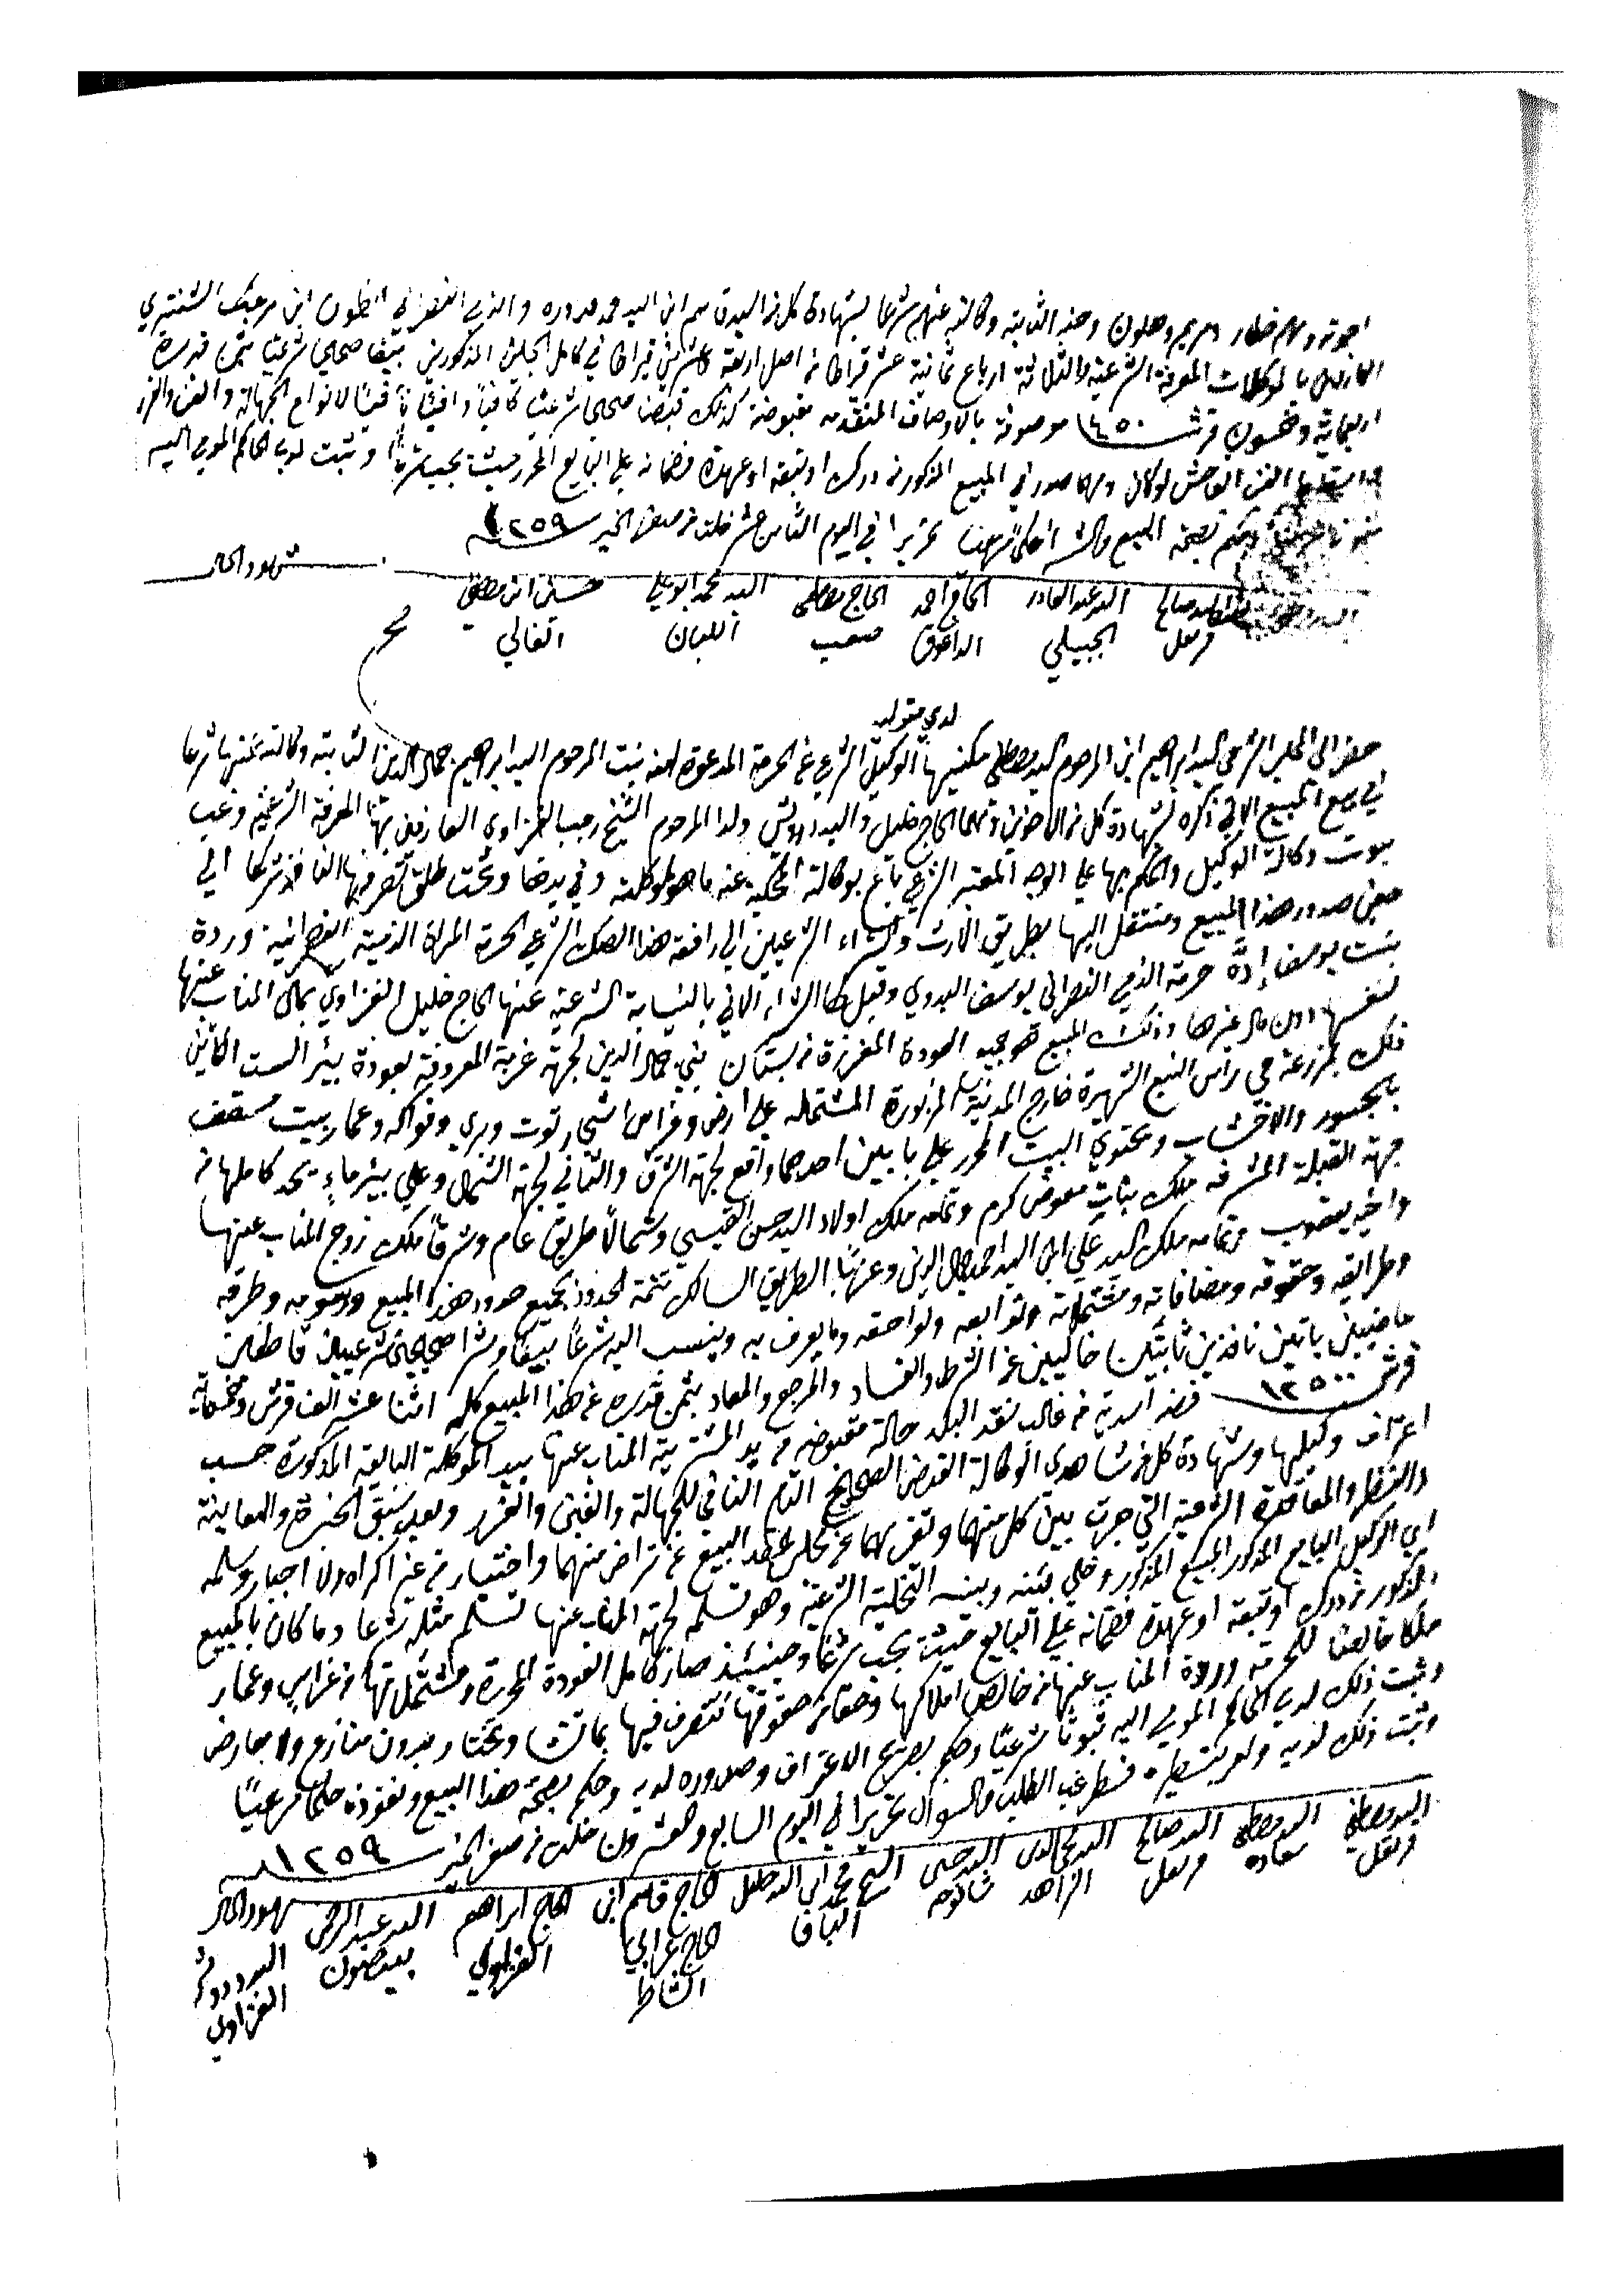 اخوته وهم خطار ومريم وهلون وحنه الثابته وكالته عنهم شرعا بشهادة كل من السيد قاسم ابن السيد محمد مدوره والذمي النصراني انطون ابن مرعبك الشنتيري
العارفين بالموكلات المعرفة الشرعية والثلاثة ارباع ثمانية عشر قيراطا من اصل اربعة وعشرين قيراطا في كامل الجلين المذكورين بيعا صحيحا شرعيا بثمن قدره
اربعماية وخمسون قرش ٤٥٠ موصوفة بالاوصاف المتقدمه مقبوضة كذلك قبضا صحيحا شرعيا كافيا وافيا نافيا لانواع الجهالة والغبن والغرر
الغبن الفاحش لو كان ومهما صدر في المبيع المذكور من درك او تبعة او عهدة فضمانه على البايع المحرر حيث يجب شرعا وثبت لدى الحاكم المومى اليه
وحكم بصحة المبيع والشراء حكما شرعيا تحريرا في اليوم الثامن عشر خلت من صفر الخير سنة ١٢٥٩
شهود الحال
السيد صالح قرنفل
السيد عبد القادر الجبيلي
الحاج احمد الداعوق
الحاج مصطفى صعب
السيد محمد ابو علي اللبان
حسين ابن مصطفى الغالي
لدى متوليه
حضر الى المجلس الشرعي السيد ابراهيم ابن المرحوم السيد مصطفى مكنيها الوكيل الشرعي عن الحرمة المدعوة امنه بنت المرحوم السيد ابراهيم جمال الدين الثابته وكالته عنها شرعا
في بيع المبيع الاتي ذكره بشهادة كل من الاخوين وهما الحاج خليل والسيد درويش ولدا المرحوم الشيخ رجب الغزاوي العارفين بها المعرفة الشرعية وغب
ثبوت وكالة الوكيل والحكم بها على الوجه المعتبر الشرعي باع بوكالته المحكية عنه ما هو لموكلته وفي يدها وتحت طلق تصرفها النافذ شرعا الى
حين صدور هذا المبيع ومنتقل اليها بطريق الارث والشراء الشرعيين الى رافعة هذا الصك الشرعي الحرمة المراة الذمية النصرانية وردة
بنت يوسف إدّه حرمة الذمي النصراني يوسف البدوي وقبل لها الشراء الاتي بالنيابة الشرعية عنها الحاج خليل الغزاوي بمال المناب عنها
لنفسها دون مال غيرها وذلك المبيع هو جميع العودة المفرزة من بستان بني جمال الدين لجهة غربه المعروفة بعودة بير الست الكاين
ذلك بمزرعة حي راس النبع الشهيرة خارج المدينة المزبورة المشتمله على ارض وغراس اشجار توت وبري وفواكه وعمار بيت مسقف
بالجسور والاخشاب ويحتوي البيت المحرر على بابين احدهما واقع لجهة الشرق والثاني لجهة الشمال وعلى بير ماء يحد كاملها من
جهة القبلة المشرفه ملك بنات معوض كرم وتمامه ملك اولاد السيد حسن القيسي وشمالا طريق عام وشرقا ملك زوج المناب عنها
واخيه يعقوب وتمامه ملك السيد علي ابن السيد احمد جمال الدين وغربا الطريق السالك تتمة الحدود بجميع حدود هذا المبيع ورسومه وطرقه
وطرايقه وحقوقه ومضافاته ومشتملاته وتوابعه ولواحقه وما يعرف به وينسب اليه شرعا بيعا وشرا صحيحين شرعيين قاطعين
ماضيين باتين نافذين ثابتين خاليين عن الشرط والفساد والمرجع والمعاد بثمن قدره عن هذا المبيع كله اثنا عشر الف قرش وخمسماية
قرش ١٢٥٠٠ فضه اسدية من غالب نقد البلد حالة مقبوضه من يد المشترية المناب عنها بيد الموكلة البايعة المذكورة حسب
اعتراف وكيلها وشهادة كل من شاهدي الوكالة القبض الصحيح التام النافي للجهالة والغبن والغرر وبعد سبق الخبرة والمعاينة
والنظر والمعاقدة الشرعية التي جرت بين كل منهما وتفرقهما عن مجلس عقد البيع عن تراض منهما واختيار من غير اكراه ولا اجبار وسلمه
اي الوكيل البايع المذكور المبيع المذكور وخلى بينه وبينه التخلية الشرعية وهو تسلمه لجهة المناب عنها تسلم مثله شرعا وما كان بالمبيع
المذكور من درك او تبعة او عهدة فضمانه على البايع حيث يجب شرعا وحينئذ صار كامل العودة المحررة ومشتملاتها من غراس وعمار
ملكا خالصا للحرمه وردة المناب عنها من خالص املاكها وحقا من حقوقها تتصرف فيها بما تشا وتختار بدون منازع ولا معارض
وثبت ذلك لدى الحاكم المومى اليه ثبوتا شرعيا وحكم بصحيح الاعتراف وصدوره لديه وحكم بصحة هذا البيع ونفوذه حكما شرعيا
وثبت ذلك لديه فسطر غب الطلب والسوال تحريرا في اليوم السابع والعشرون خلت من صفر الخير سنة ١٢٥٩
السيد مصطفى قرنفل
السيد مصطفى سعاده
السيد صالح قرنفل
السيد محيي الدين الزاهد
السيد حسن شاتوحه
الشيخ محمد ابن السيد خليل البافا
الحاج قاسم ابن الحاج عرابي الشاطر
الحاج ابراهيم الغزاوي
السيد عبد الرحمن بيضون
شهود الحال
السيد درويش الغزاوي